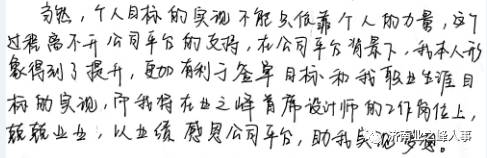 当然，个人目标的实现不能只依靠个人的力量，这个
过程离不开公司平台的支持，在公司平台背景下，我本人形
象得到了提升，更加有利于签单目标和我职业生涯目
标的实现，而我将在业之峰首席设计师的工作岗位上，
兢兢业业，以业绩感恩公司平台，助我实现梦想。
济南业之峰人事